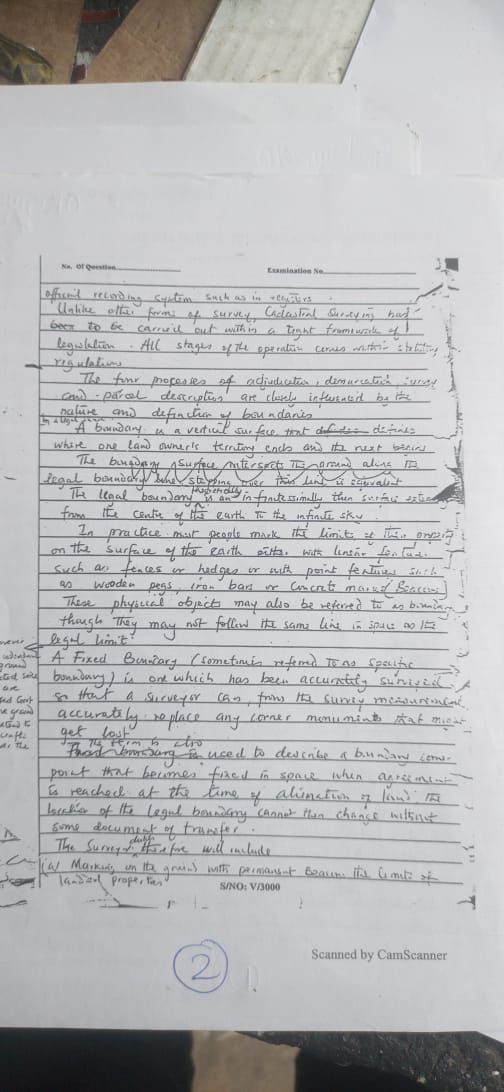 No. Of Question
Examination No.
official recording system such as in registers.
Unlike other forms of survey, Cadastral Surveying has
been to be carried out within a tight framework of
legislation. All stages of the operation comes within statutory
regulations
The four processes of adjudication, demarcation, survey
and parcel description are closely influenced by the
nature and definition of boundaries
In a legal sense
A boundary is a vertical surface that defines defines
where one land owner's territory ends and the next begins
The boundary surface intersects the ground along the
legal boundary line stepping over this line is equivalent
The legal boundary theoretically is an infinitessimally thin surface
from the centre of the earth to the infinite sky
In practice most people mark the limits of their property
on the surface of the earth either with linear features
such as fences or hedges or with point features such
as wooden pegs, iron bars or Concrete Beacons
These physical objects may also be referred to as
though they may not follow the same line in space as the
legal limit
A Fixed Boundary (sometimes referred to as specific
boundary) is one which has been accurately surveyed
so that a surveyor can, from the survey measurement
accurately replace any corner monuments that might
get lost
The term is also
used to describe a boundary corner
point that becomes fixed in space when agreement
is reached at the time of alienation of land the
location of the legal boundary cannot then change without
some document of transfer.
The Surveyor duties therefore will include
(a) Marking on the ground with permanent Beacons the limits of
landed properties
S/NO: V/3000
2
Scanned by CamScanner